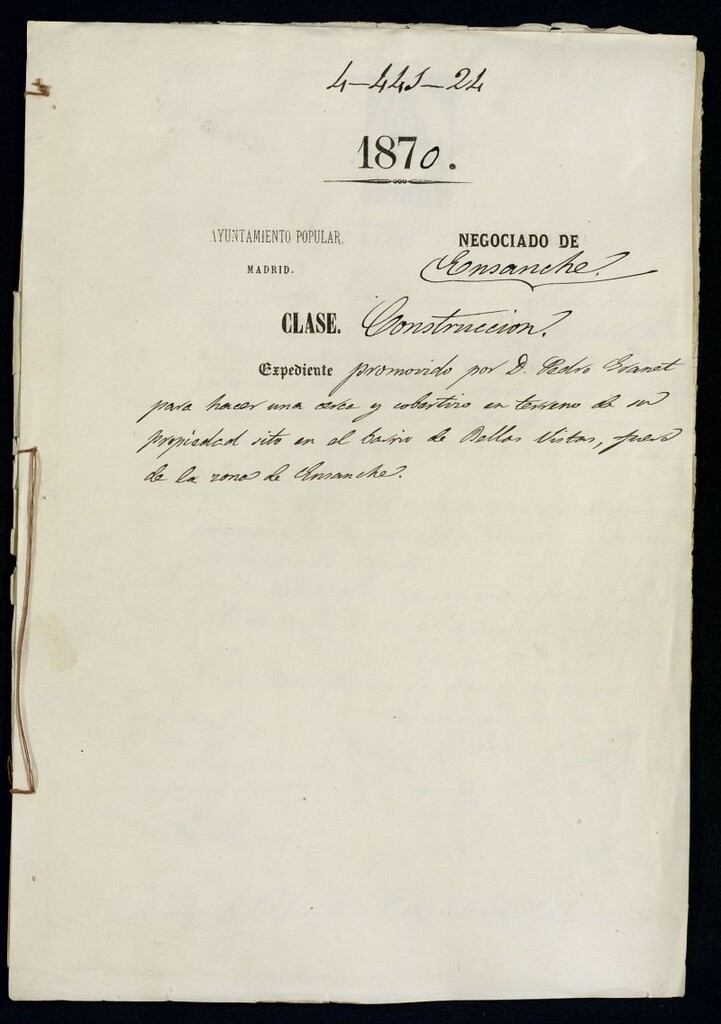 4-445-24
1870.
AYUNTAMIENTO POPULAR.
MADRID.
NEGOCIADO DE
Ensanche.
CLASE. Construccion.
Expediente promovido por D. Pedro
para hacer una cerca y cobertizo en terreno de su
propiedad sito en el barrio de Bellas Vistas, fuera
de la zona de Ensanche.